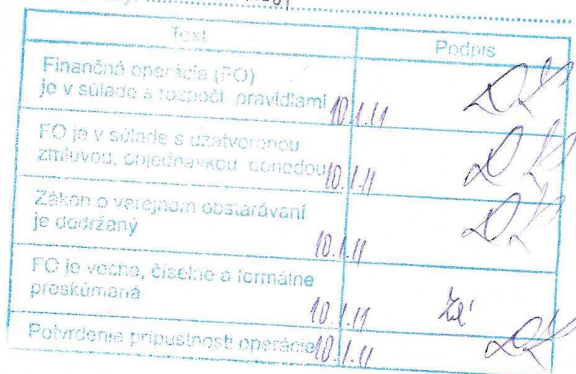 Text Podpis
Finančná operácia (FO)
je v súlade s rozpočt pravidlami 10.1.11
FO je v súlade s uzatvorenou
zmluvou, objednávkou dohodou 10.1.11
Zákon o verejnom obstarávaní
je dodržaný
10.1.11
FO je vecne, číselne a formálne
preskúmaná
10.1.11
Potvrdenie prípustnosti operácie 10.1.11